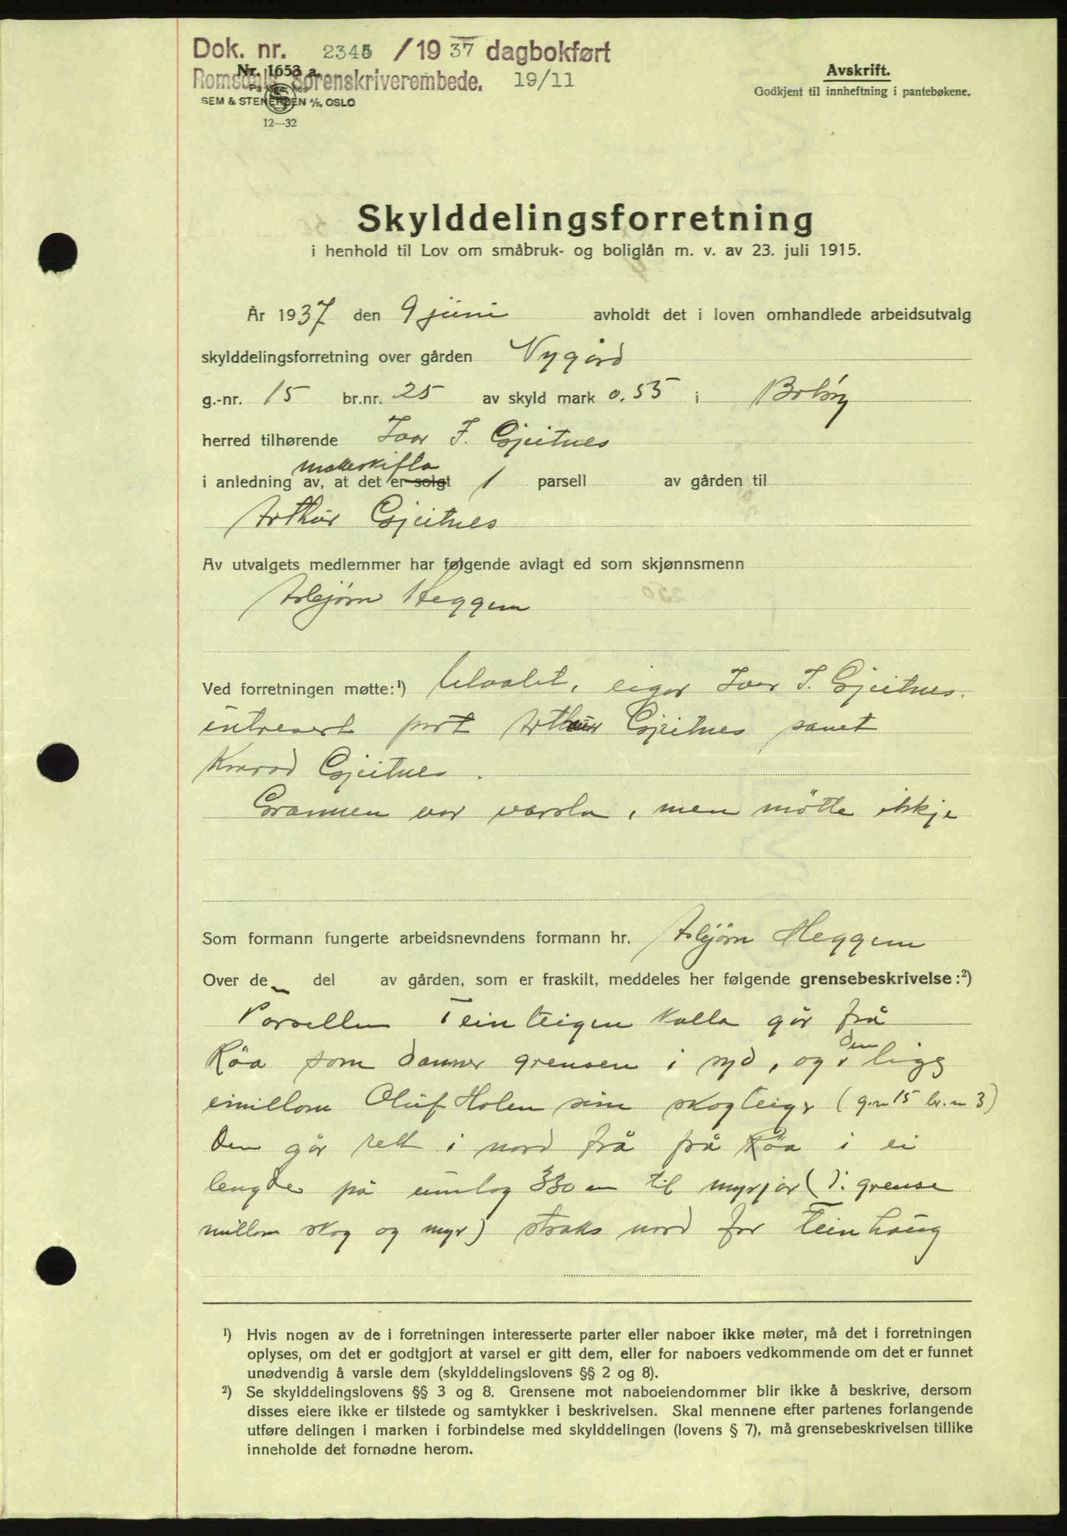 Dok. nr. 2345 /1937 dagbokført
Romsdals Sorenskriverembede. 19/11
Nr. 1653 a.
SEM & STENERSEN A/S, OSLO
12—32
Avskrift.
Godkjent til innheftning i pantebøkene.
Skylddelingsforretning
i henhold til Lov om småbruk- og boliglån m. v. av 23. juli 1915.
År 1937 den 9 juni avholdt det i loven omhandlede arbeidsutvalg
skylddelingsforretning over gården Nygård
g.-nr. 15 br.nr. 25 av skyld mark 0.55 i Bolsøy
herred tilhørende Ivar J. Gjeitnes
makeskifta
i anledning av, at det er solgt 1 parsell av gården til
Arthur Gjeitnes
Av utvalgets medlemmer har følgende avlagt ed som skjønnsmenn
Asbjørn Heggem
Ved forretningen møtte:¹) Utvalet, eigar Ivar J. Gjeitnes.
intresert part Arthur Gjeitnes samt
Konrad Gjeitnes.
Grannen var varsla, men møtte ikkje
Som formann fungerte arbeidsnevndens formann hr. Asbjørn Heggem
Over den del av gården, som er fraskilt, meddeles her følgende grensebeskrivelse:²)
Parsellen Teinteigen kalla går frå
Røa som danner grensen i syd, og den ligg
imillom Oluf Holen sine skogteigr (g.n 15 br.n 3)
Den går rett i nord frå frå Røa i ei
lengde på umlag 330 m til myrjar (d: grense
millom skog og myr) straks nord for Teinhaug
¹) Hvis nogen av de i forretningen interesserte parter eller naboer ikke møter, må det i forretningen
oplyses, om det er godtgjort at varsel er gitt dem, eller for naboers vedkommende om det er funnet
unødvendig å varsle dem (skylddelingslovens §§ 2 og 8).
²) Se skylddelingslovens §§ 3 og 8. Grensene mot naboeiendommer blir ikke å beskrive, dersom
disses eiere ikke er tilstede og samtykker i beskrivelsen. Skal mennene efter partenes forlangende
utføre delingen i marken i forbindelse med skylddelingen (lovens § 7), må grensebeskrivelsen tillike
inneholde det fornødne herom.